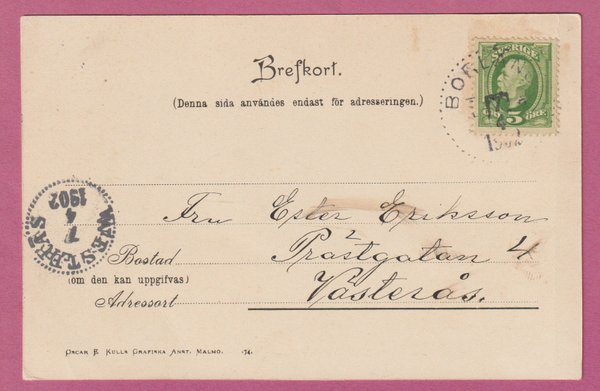 Brefkort.
(Denna sida användes endast för adresseringen.)
SVERIGE
5 ÖRE
BORL
1902
WESTERÅS
7
4
1902
Fru Ester Eriksson
Bostad Prästgatan 4
(om den kan uppgifvas)
Adressort Västerås.
OSCAR E. KULLS GRAFISKA ANST. MALMÖ.